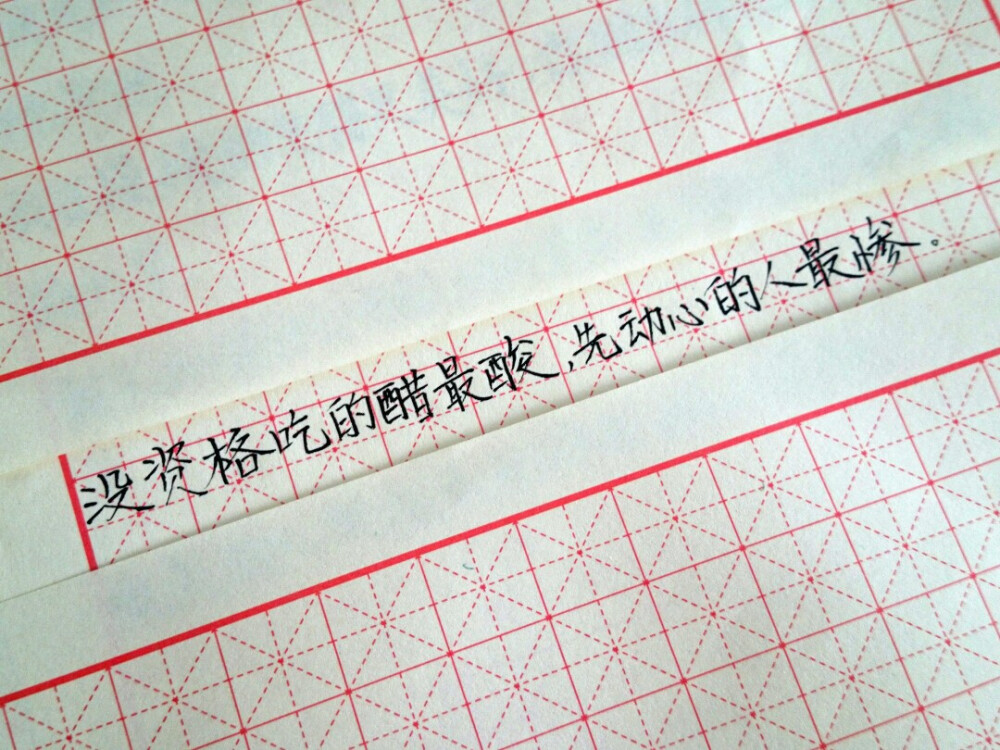 没资格吃的醋最酸,先动心的人最惨。